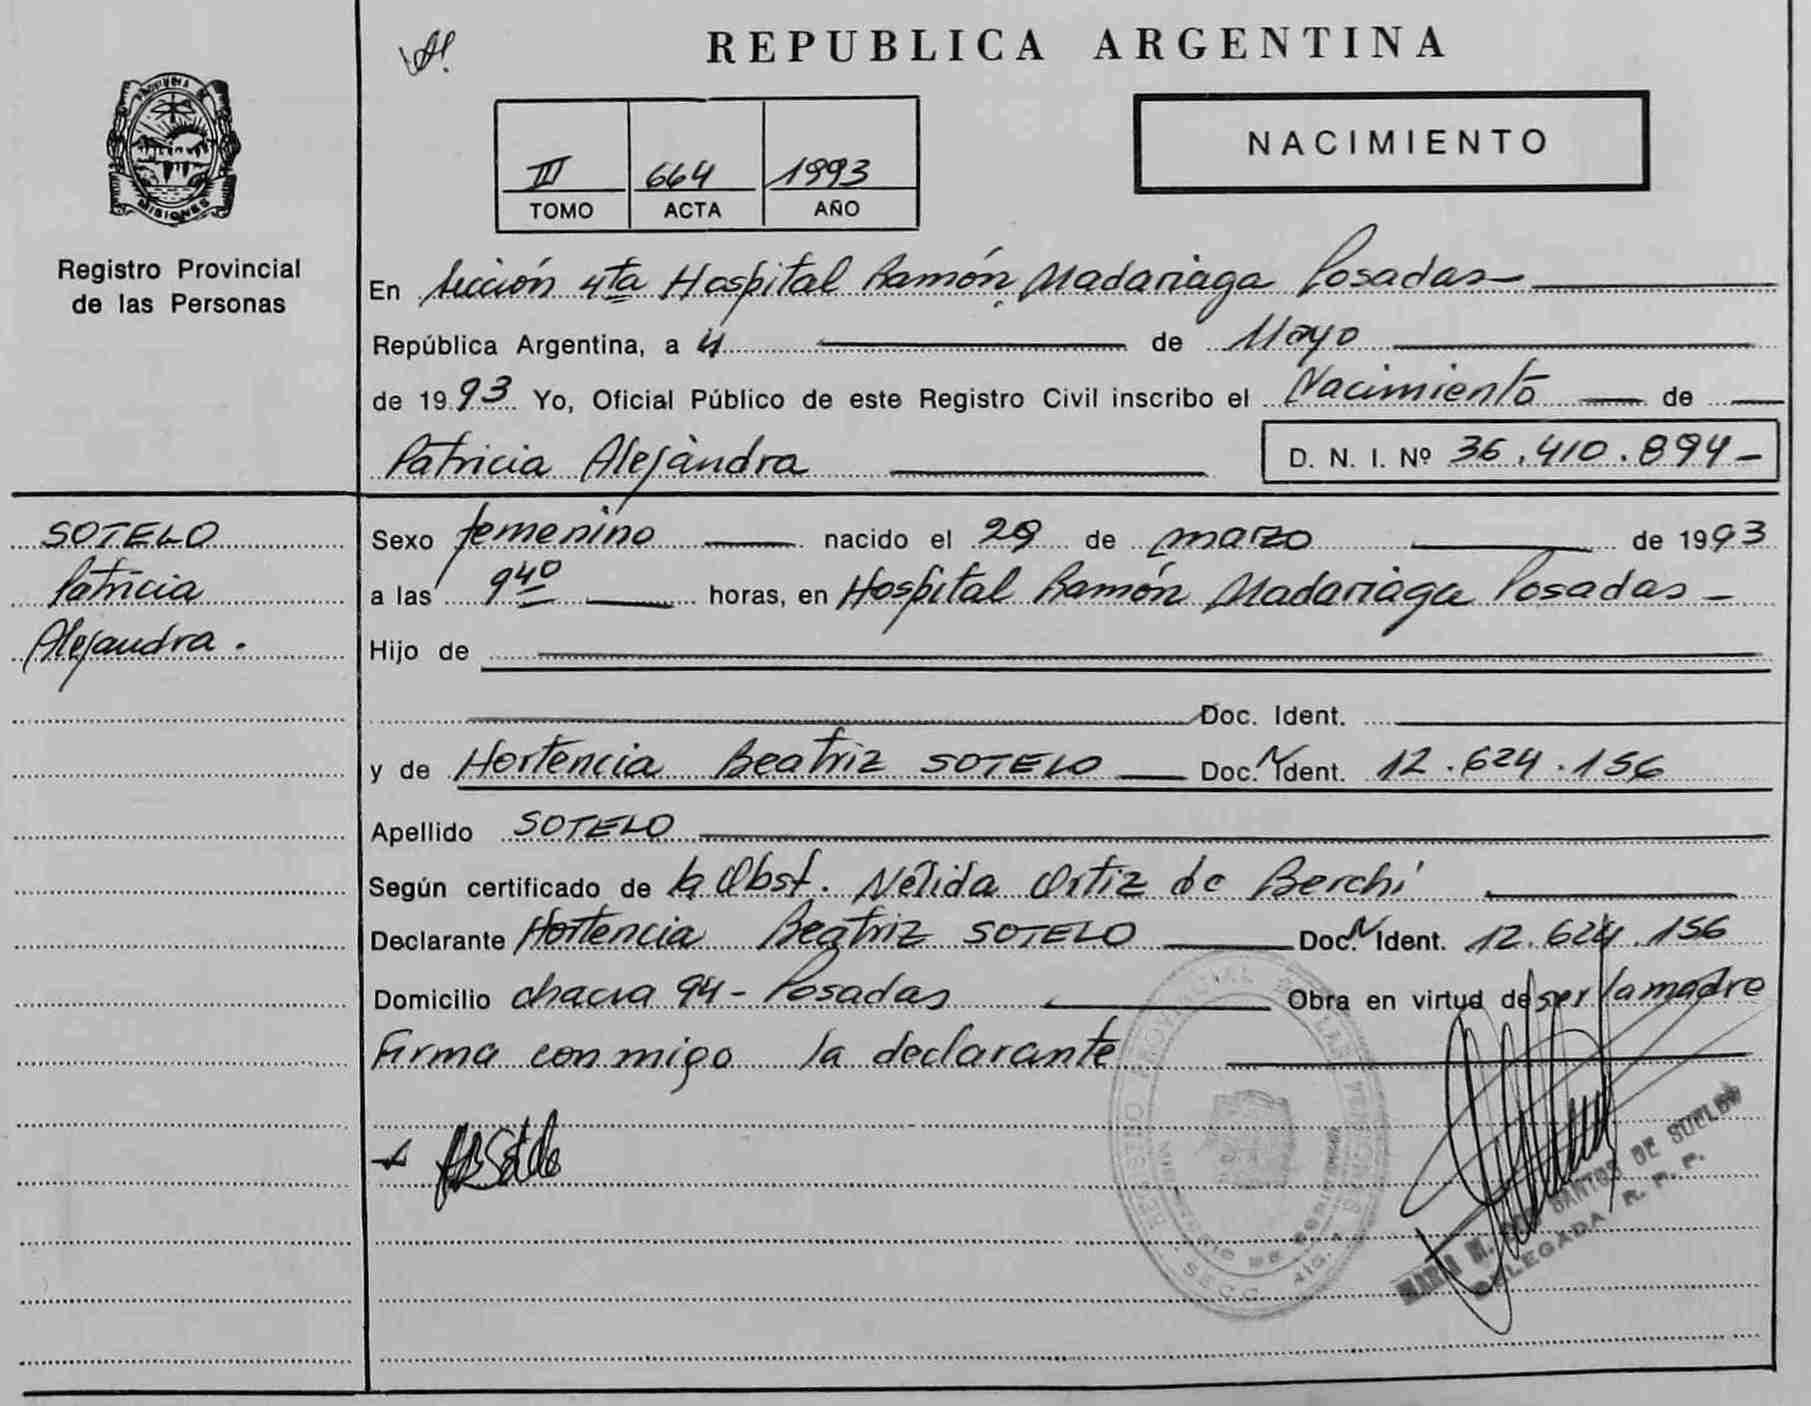 REPUBLICA ARGENTINA
PROVINCIA DE
MISIONES
Registro Provincial
de las Personas
III 664 1993
TOMO ACTA AÑO
NACIMIENTO
En Sección 4ta Hospital Ramón Madariaga Posadas
República Argentina, a 4 de Mayo
de 1993 Yo, Oficial Público de este Registro Civil inscribo el Nacimiento de
Patricia Alejandra
D. N. I. Nº 36.410.894-
SOTELO
Patricia
Alejandra.
Sexo femenino nacido el 29 de marzo de 1993
a las 9 40 horas, en Hospital Ramón Madariaga Posadas -
Hijo de
Doc. Ident.
y de Hortencia Beatriz SOTELO Doc. N Ident. 12.624.156
Apellido SOTELO
Según certificado de la Obst. Nélida Ortiz de Berchi
Declarante Hortencia Beatriz SOTELO Doc. N Ident. 12.624.156
Domicilio chacra 94 - Posadas Obra en virtud de ser la madre
Firma conmigo la declarante
HBSotelo
REGISTRO PROVINCIAL DE LAS PERSONAS
DOS SANTOS DE
DELEGADA R. P. P.